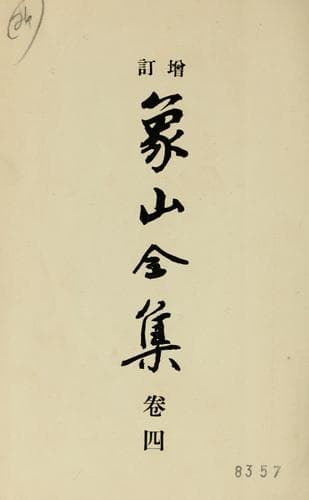 增訂
象山全集
卷四
8357